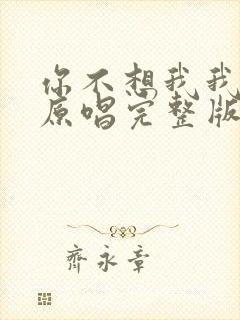 你不想我我
原唱完整版
齐永章